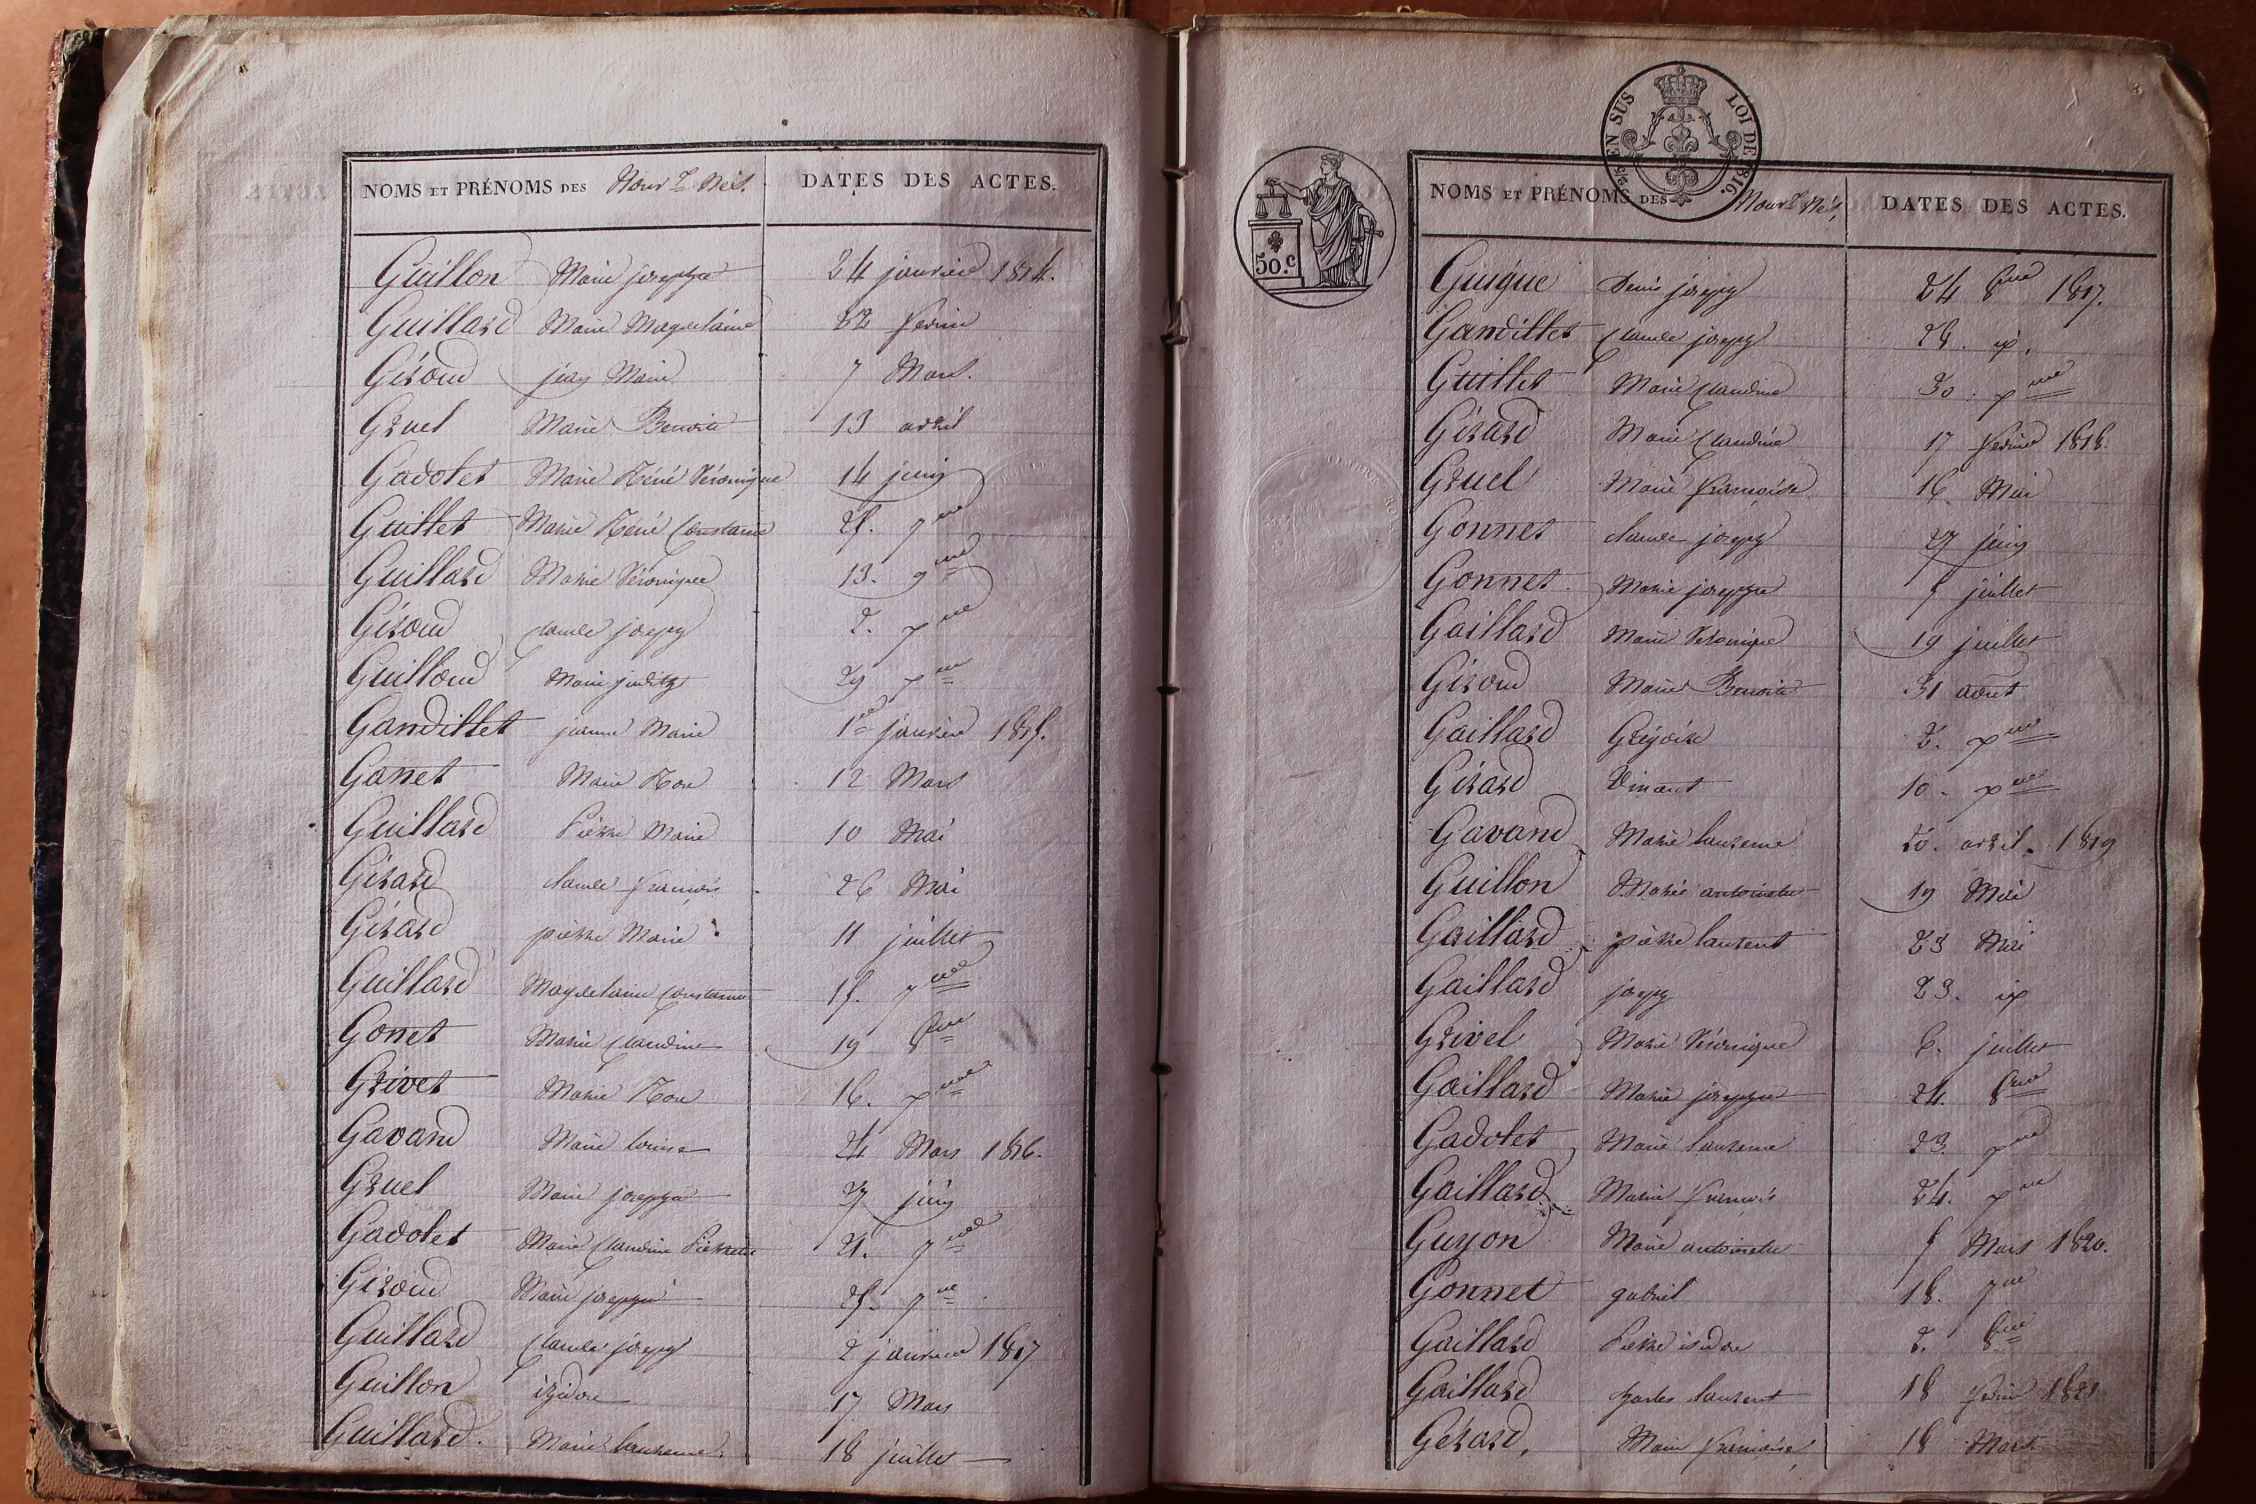 NOMS ET PRÉNOMS DES Nouv.x Nés. DATES DES ACTES.
Guillon Marie josephte 24 janvier 1814.
Guillard Marie Magdelaine 22 fevrier
Giroud jean Marie 7 Mars.
Gruel Marie Benoite 13 avril
Gadolet Marie Réné Véronique 14 juin
Guillet Marie Réné Constance 25. 7bre
Guillard Marie Véronique 13. 9bre
Giroud Claude joseph 2. xbre
Guilloud Marie judith 29 xbre
Gandillet jeanne Marie 1er janvier 1815.
Ganet Marie Rose 12 Mars
Guillard Pierre Marie 10 Mai
Girard Claude francois 26 Mai
Girard pierre Marie 11 juillet
Guillard Magdelaine Constance 15. 7bre
Gonet Marie Claudine 19 8bre
Grivet Marie Rose 16. xbre
Gavand Marie louise 24 Mars 1816.
Gruel Marie josephte 27 juin
Gadolet Marie Claudine Pierrette 21. 7bre
Giroud Marie josephte 25. 7bre
Guillard Claude joseph 2 janvier 1817
Guillon izidore 17 Mars
Guillard. Marie laurence. 18 juillet
EN SUS LOI DE 1816.
50.c
NOMS ET PRÉNOMS DES Nouv.x Nés, DATES DES ACTES.
Guigue Denis joseph 24 8bre 1817.
Gandillet Claude joseph 26. xbre
Guillet Marie Claudine 30. xbre
Girard Marie Claudine 17 fevrier 1818.
Gruel Marie francoise 16 Mai
Gonnet Claude joseph 27 juin
Gonnet Marie josephte 5 juillet
Gaillard Marie Véronique 19 juillet
Giroud Marie Benoite 31 aout
Gaillard Grégoire 2. xbre
Girard Vincent 10. xbre
Gavand Marie laurence 20. avril. 1819
Guillon Marie antoinette 19 Mai
Gaillard pierre laurent 23 Mai
Gaillard joseph 23.
Grivel Marie Véronique 6. juillet
Gaillard Marie josephte 24. 8bre
Gadolet Marie laurence 23.
Gaillard Marie francois 24. xbre
Guyon Marie antoinette 5 Mars 1820.
Gonnet gabriel 18. 7bre
Gaillard Pierre isidore 2. 8bre
Gaillard charles laurent 18 fevrier 1821
Gérard, Marie francoise, 18 Mars